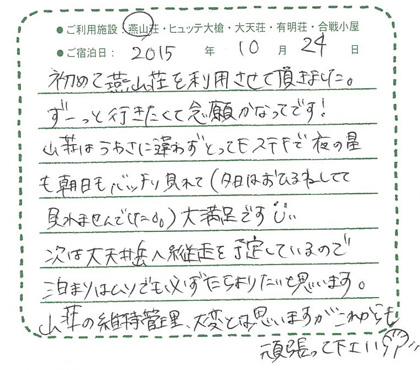 ●ご利用施設：燕山荘・ヒュッテ大槍・大天荘・有明荘・合戦小屋
●ご宿泊日：2015年10月24日
初めて燕山荘を利用させて頂きました。
ずーっと行きたくて念願かなってです！
山荘はうわさに違わずとってもステキで夜の星
も朝日もバッチリ見れて(夕日はおひるねしてて
見れませんでした。)大満足です
次は大天井岳へ縦走を予定しているので
泊まりはムリでも必ず立ちよりたいと思います。
山荘の維持管理、大変とは思いますがこれからも
頑張って下さい